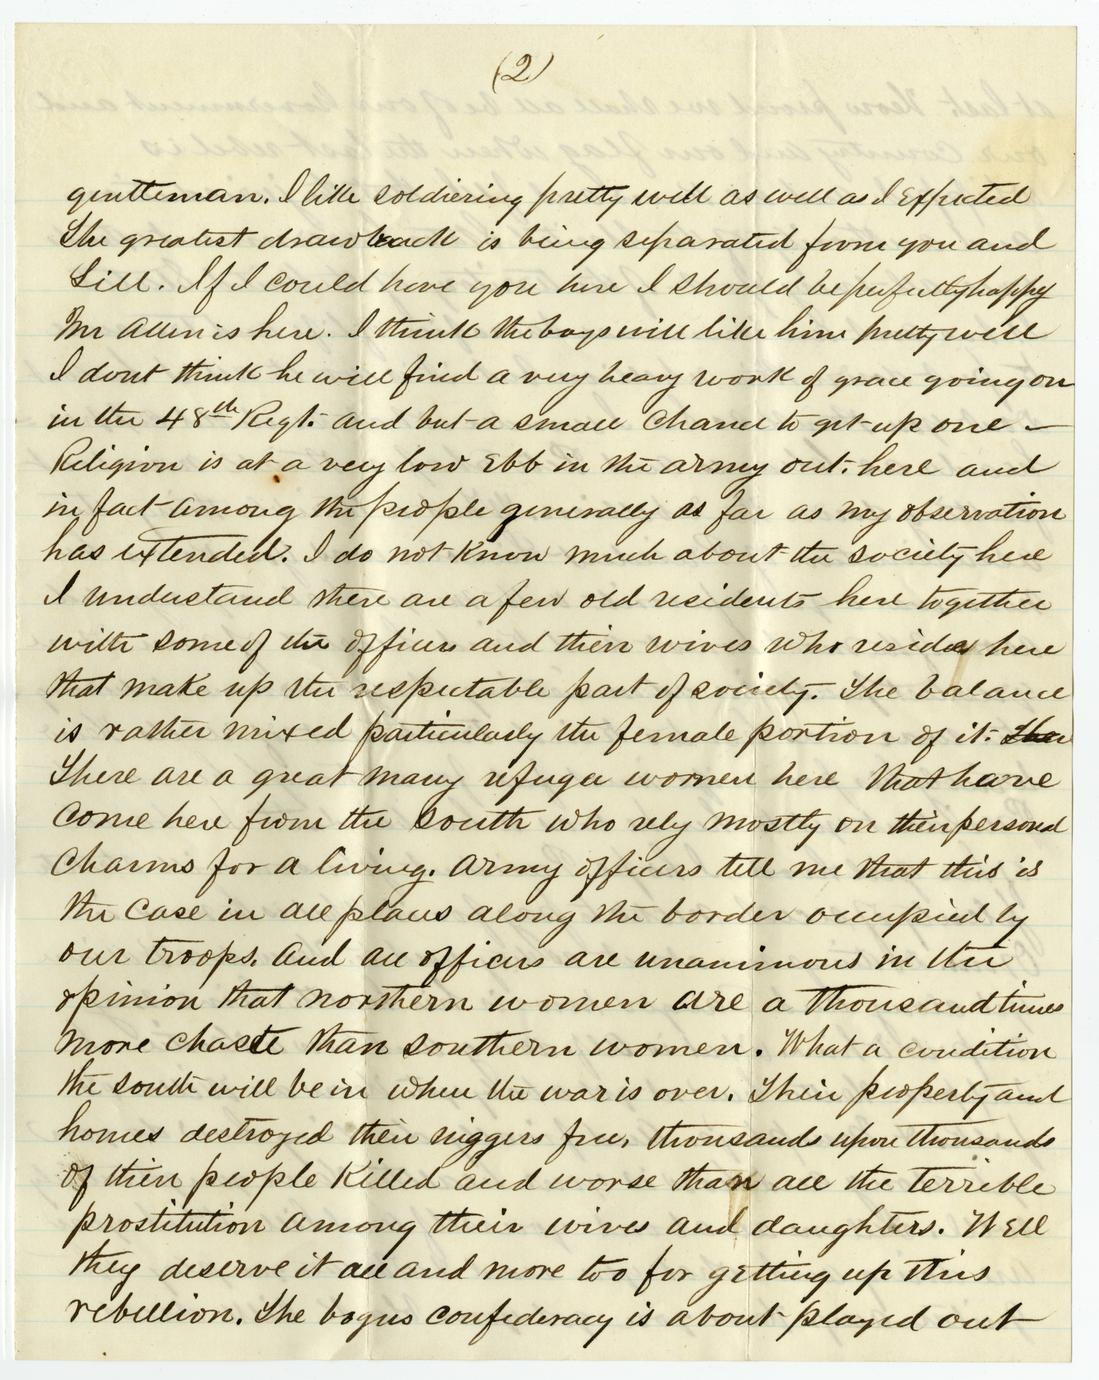 (2)
gentleman. I like soldiering pretty well as well as I Expected
The greatest drawback is being separated from you and
Lill. If I could have you here I should be perfectly happy
Mr Allen is here. I think the boys will like him pretty well
I dont think he will find a very heavy work of grace going on
in the 48th Regt. and but a small chance to get up one —
Religion is at a very low Ebb in the army out. here and
in fact among the people generally as far as my observation
has extended. I do not know much about the society here
I understand there are a few old residents here together
with some of the officers and their wives who reside here
that make up the respectable part of society. The balance
is rather mixed particularly the female portion of it.
There are a great many refugee women here that have
come here from the south who rely mostly on their personal
charms for a living. Army officers tell me that this is
the case in all places along the border occupied by
our troops. And all officers are unanimous in the
opinion that northern women are a thousand times
more chaste than southern women. What a condition
the south will be in when the war is over. Their property and
homes destroyed their niggers free, thousands upon thousands
of their people killed and worse than all the terrible
prostitution among their wives and daughters. Well
they deserve it all and more too for getting up this
rebellion. The bogus confederacy is about played out